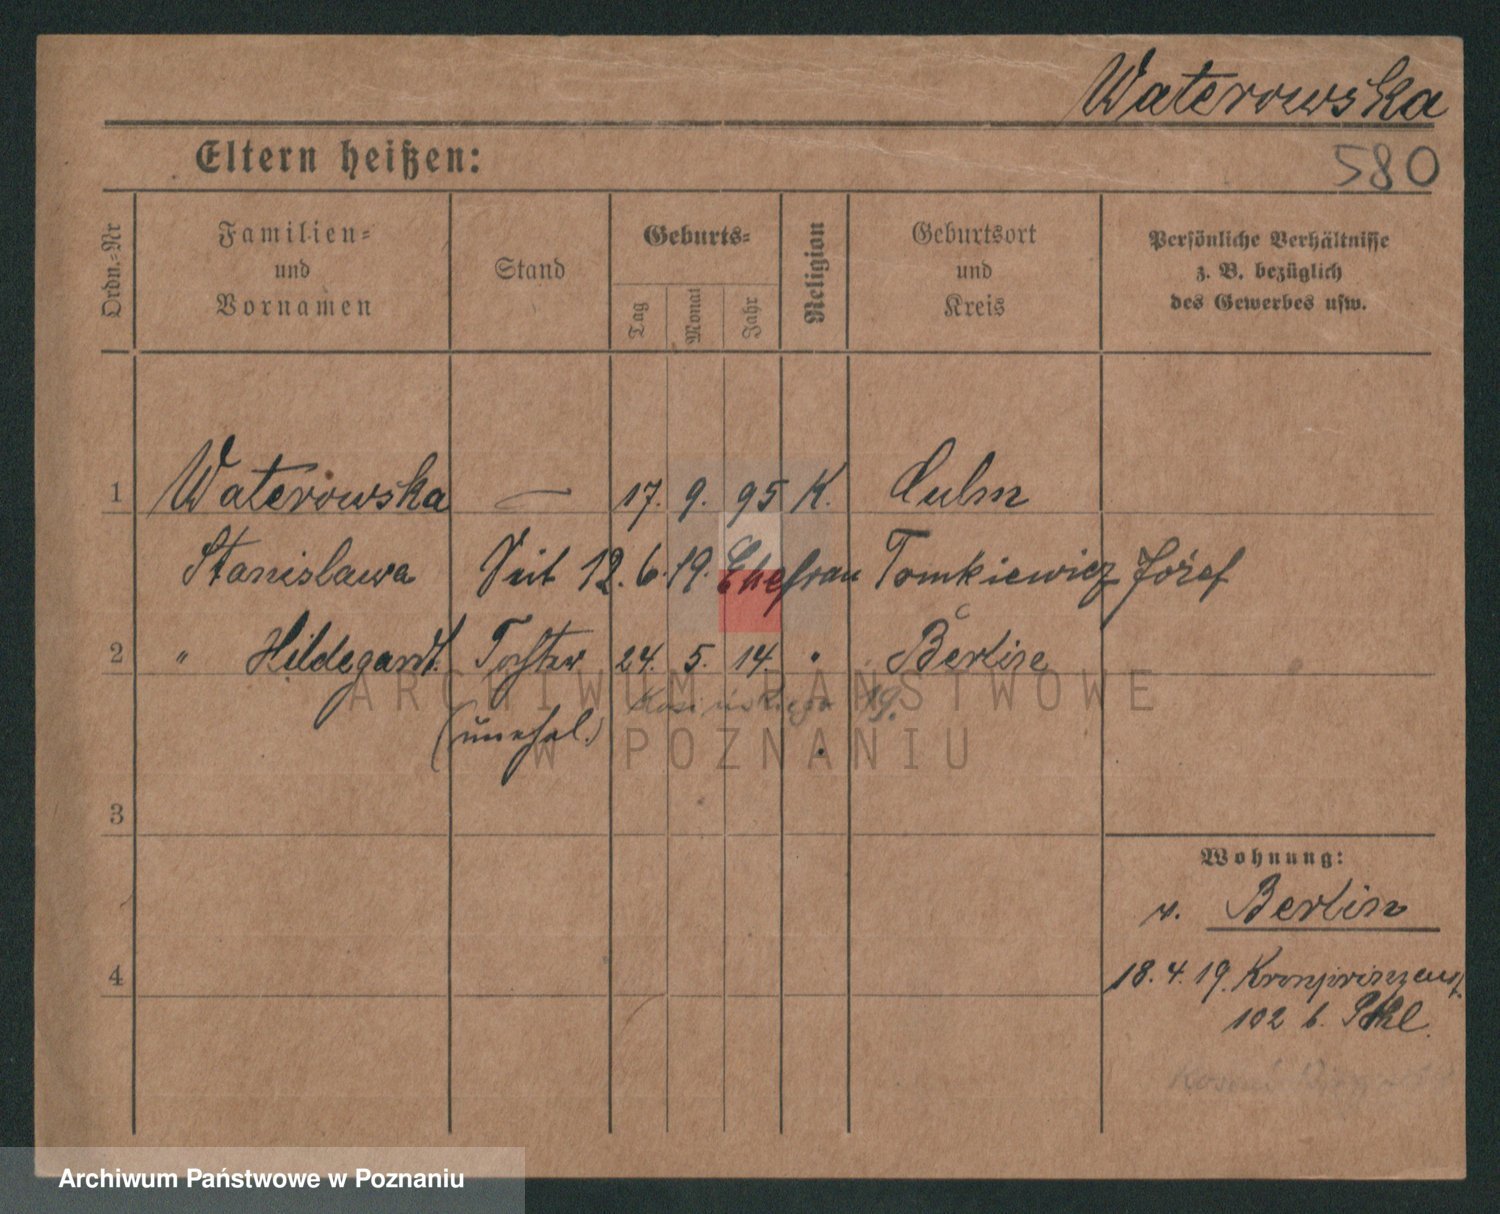 Waterowska
580
Eltern heißen:
Ordn.-Nr
Familien-
und
Vornamen
Stand
Geburts-
Tag
Monat
Jahr
Religion
Geburtsort
und
Kreis
Persönliche Verhältnisse
z. B. bezüglich
des Gewerbes usw.
1 Waterowska — 17. 9. 95 K. Culm
Stanislawa Seit 12. 6. 19. Ehefrau Tomkiewicz Józef
2 " Hildegardt. Tochter 24. 5. 14. " Berlin
(unehel.)
19.
ARCHIWUM PAŃSTWOWE
W POZNANIU
3
Wohnung:
v. Berlin
4
18. 4. 19. Kronprinzenst.
102 b.
Archiwum Państwowe w Poznaniu